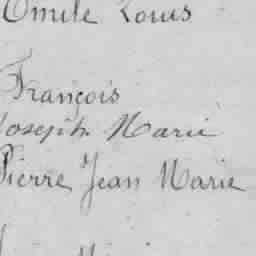 Emile Louis
François
Joseph Marie
Pierre Jean Marie